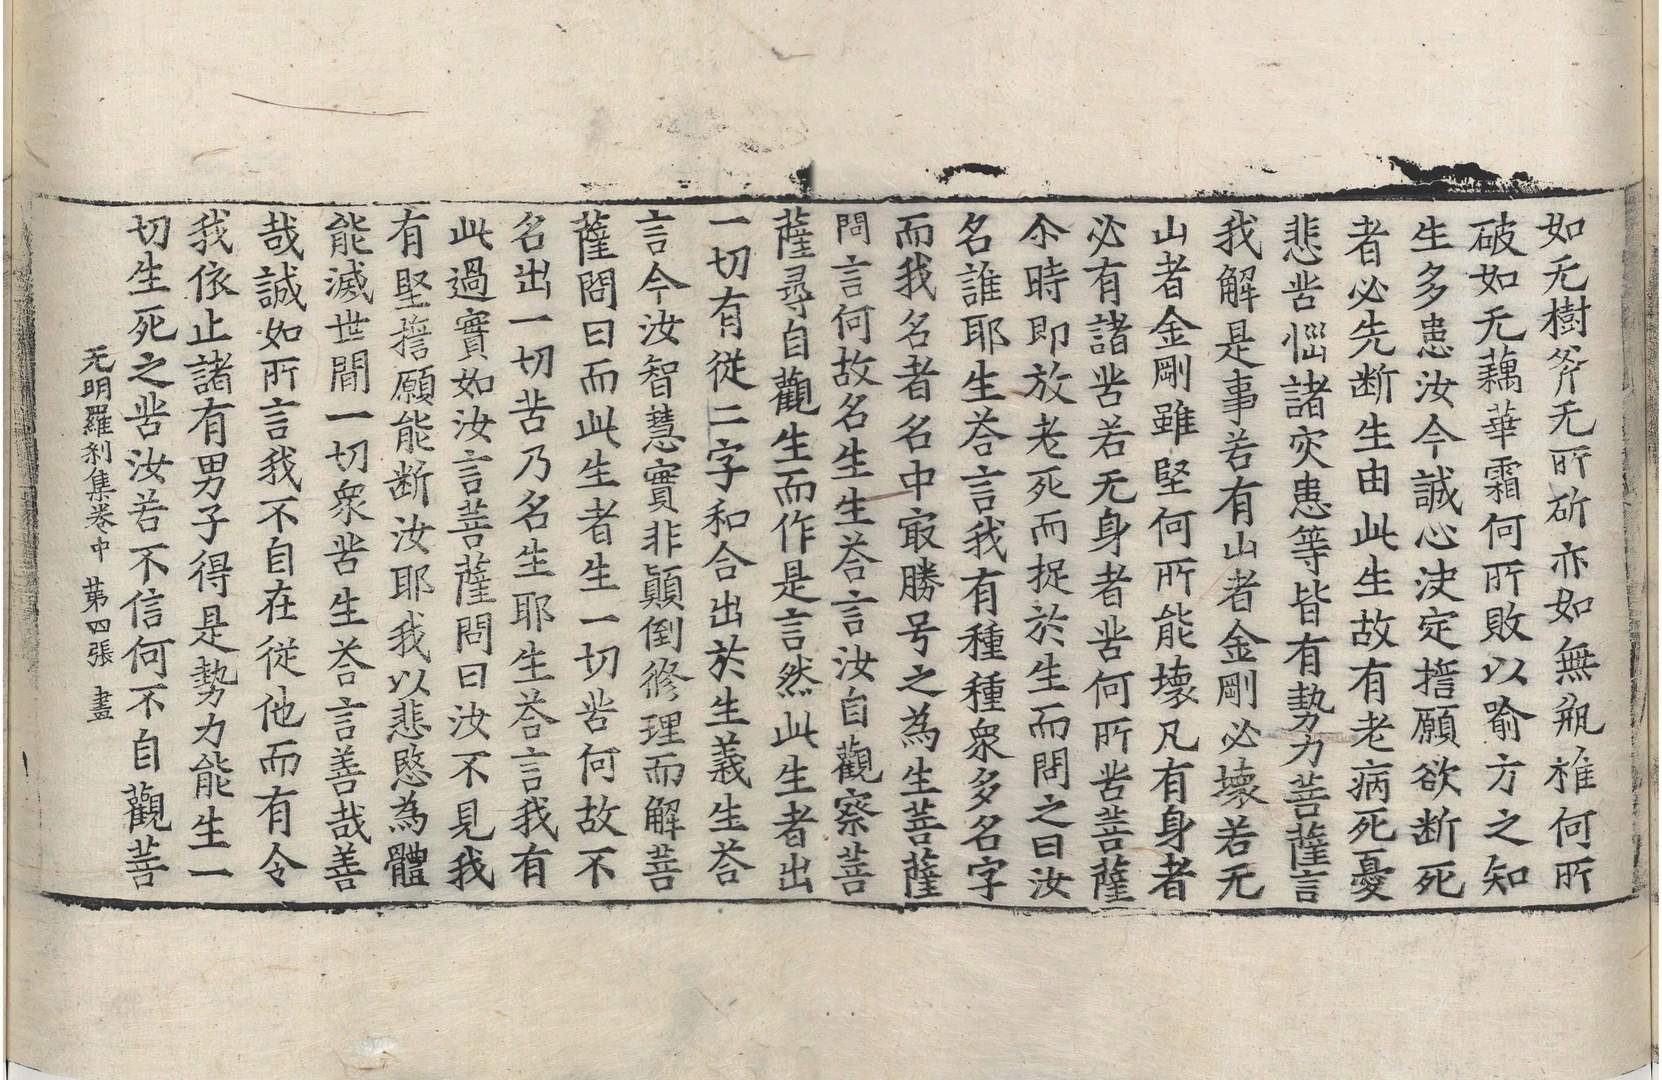 如无樹斧无所斫亦如無瓶椎何所
破如无藕華霜何所敗以喻方之知
生多患汝今誠心决定擔願欲断死
者必先断生由此生故有老病死憂
悲苦惱諸灾患等皆有勢力菩薩言
我解是事若有山者金剛必壞若无
山者金剛雖堅何所能壞凡有身者
必有諸苦若无身者苦何所苦菩薩
尒時即放老死而捉於生而問之曰汝
名誰耶生荅言我有種種衆多名字
而我名者名中㝡勝号之為生菩薩
問言何故名生生荅言汝自觀察菩
薩尋自觀生而作是言然此生者出
一切有從二字和合出於生義生荅
言今汝智慧實非顛倒修理而解菩
薩問曰而此生者生一切苦何故不
名出一切苦乃名生耶生荅言我有
此過實如汝言菩薩問曰汝不見我
有堅擔願能断汝耶我以悲愍為體
能滅世間一切衆苦生荅言善哉善
哉誠如所言我不自在從他而有令
我依止諸有男子得是勢力能生一
切生死之苦汝若不信何不自觀菩
无明羅刹集卷中 第四張 畫